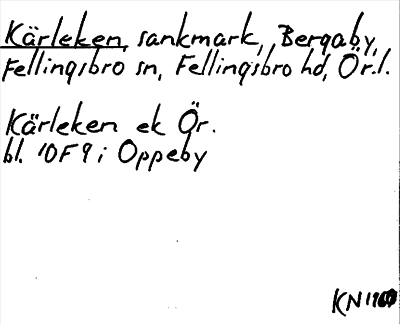 Kärleken, sankmark, Bergaby,
Fellingsbro sn, Fellingsbro hd, Ör.l.
Kärleken ek Ör.
bl. 10F 9 i Oppeby
KN